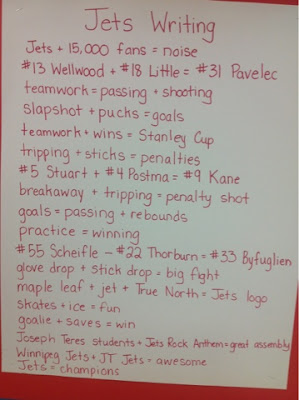 Jets Writing
Jets + 15,000 fans = noise
#13 Wellwood + #18 Little = #31 Pavelec
teamwork = passing + shooting
slapshot + pucks = goals
teamwork + wins = Stanley Cup
tripping + sticks = penalties
#5 Stuart + #4 Postma = #9 Kane
breakaway + tripping = penalty shot
goals = passing + rebounds
practice = winning
#55 Scheifle - #22 Thorburn = #33 Byfuglien
glove drop + stick drop = big fight
maple leaf + jet + True North = Jets logo
skates + ice = fun
goalie + saves = win
Joseph Teres students + Jets Rock Anthem = great assembly
Winnipeg Jets + JT Jets = awesome
Jets = champions